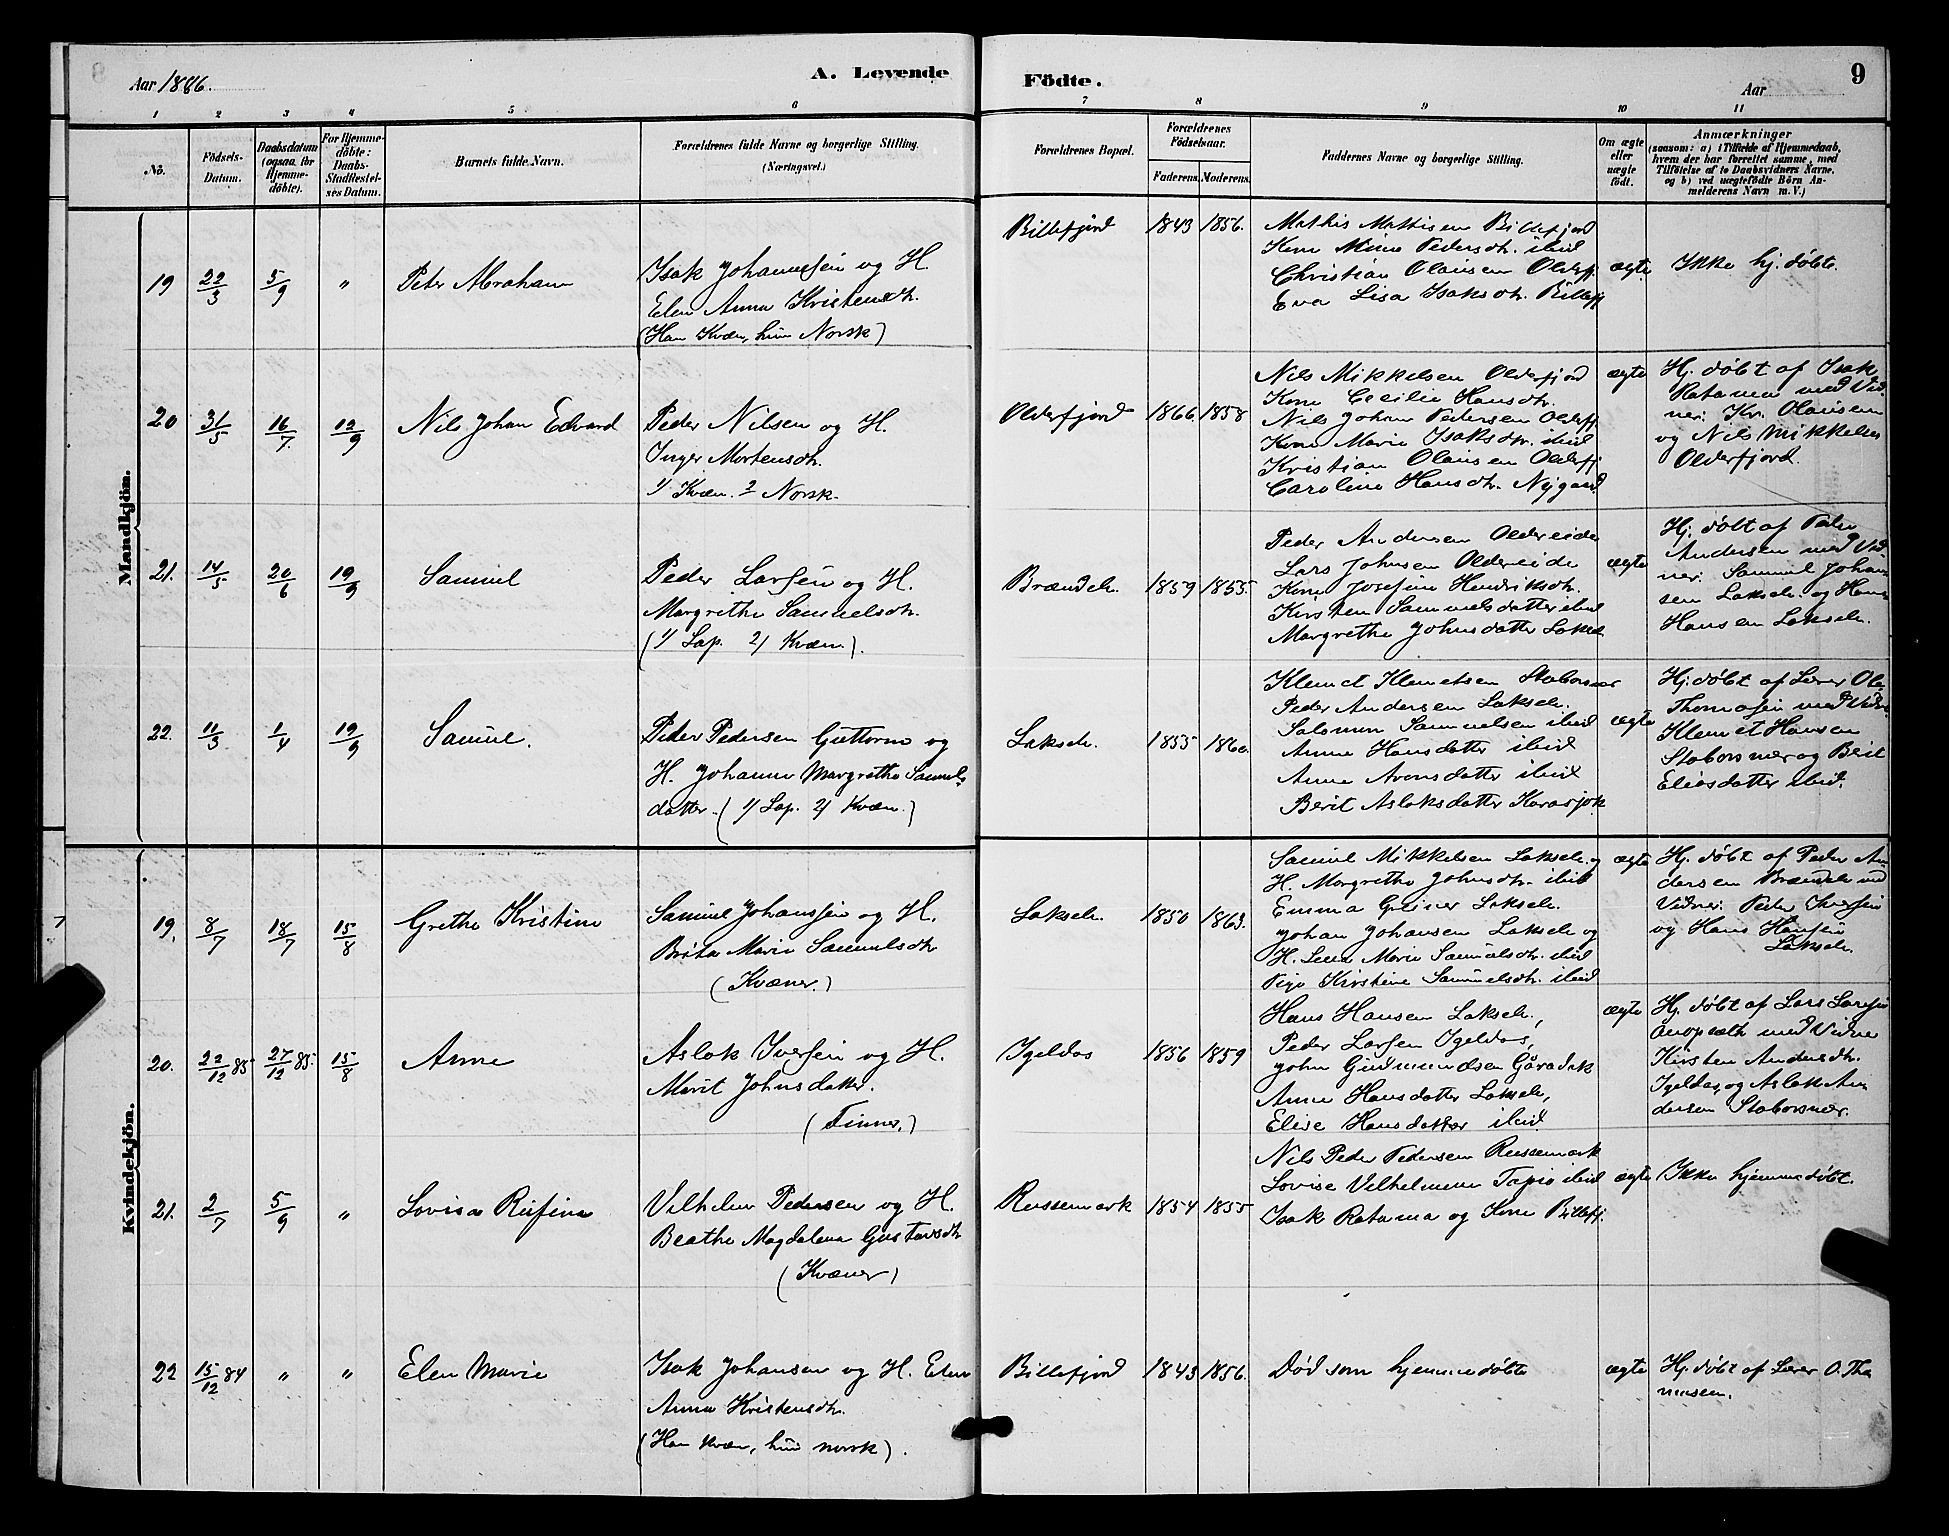 Aar 1886.
A. Levende Födte.
Aar
9
1 2 3 4 5 6 7 8 9 10 11
No.
Födsels-
Datum.
Daabsdatum
(ogsaa for
Hjemme-
döbte).
For Hjemme-
döbte:
Daabs-
Stadfæstel-
ses Datum.
Barnets fulde Navn.
Forældrenes fulde Navne og borgerlige Stilling.
(Næringsvei.)
Forældrenes Bopæl.
Forældrenes
Födselsaar.
Faderens. Moderens.
Faddernes Navne og borgerlige Stilling.
Om ægte
eller
uægte
födt.
Anmærkninger
(saasom: a) i Tilfælde af Hjemmedaab,
hvem der har forrettet samme, med
Tilföielse af to Daabsvidners Navne,
og b) ved uægtefödte Börn An-
melderens Navn m. V.)
Mandkjön.
19 22/3 5/9 " Peter Abraham
Isak Johannesen og H.
Elen Anna Kristensdtr.
(Han Kvæn, hun Norsk)
Billefjord 1843 1856.
Mathis Mathisen Billefjord
Kone Mine Pedersdtr. ibid
Christian Olausen Olderfj.
Eva Lisa Isaksdtr. Billefj
ægte
Ikke hj. døbt.
20 31/5 16/7. 12/9 Nils Johan Edvard
Peder Nilsen og H.
Inger Mortensdtr.
1/ Kvæn. 2 Norsk.
Olderfjord 1866. 1858
Nils Mikkelsen Olderfjord
Kone Cecilie Hansdtr.
Nils Johan Pedersen Olderfj.
Kone Marie Isaksdtr. ibid
Kristian Olausen Olderfj
Caroline Hansdtr. Nygaard
ægte
Hj. døbt af Isak
Ratama med Vid-
ner: Kr. Olausen
og Nils Mikkelsen
Olderfjord.
21. 14/5 20/6 19/9 Samuel
Peder Larsen og H.
Margrethe Samuelsdtr.
(1/ Lap. 2/ Kvæn.)
Brændelv. 1859 1855.
Peder Andersen Oldereide
Lars Johnsen Oldereide
Kone Josefine Hendriksdtr.
Kirsten Samuelsdatter ibid
Margrethe Johnsdatter Lakse
ægte
Hj. døbt af Peder
Andersen med Vid-
ner: Samuel Johan-
sen Lakselv. og Hans
Hansen Lakselv.
22. 11/3 1/4 19/9 Samuel.
Peder Pedersen Guttorm og
H. Johanne Margrethe Samuels
datter. (1/ Lap. 2/ Kvæn.)
Lakselv. 1855 1860.
Klemet Klemetsen Staborsnær
Peder Andersen Lakselv.
Salomon Samuelsen ibid
Anne Hansdatter ibid
Anne Aronsdatter ibid
Berit Aslaksdatter Karasjok
ægte
Hj. døbt af Lærer Ole
Thomasen med Vidn.
Klemet Hansen
Staborsnær og Berit
Eliasdatter ibid.
Kvindekjön.
19. 8/7 18/7 15/8 Grethe Kristine
Samuel Johanssen og H.
Brita Marie Samuelsdtr
(Kvæner.)
Lakselv. 1850 1863.
Samuel Mikkelsen Lakselv. og
H. Margrethe Johnsdtr. ibid
Emma Greiner Lakselv.
Johan Johansen Lakselv og
H. Lena Marie Samuelsdtr. ibid
Pige Kirstine Samuelsdtr. ibid
ægte
Hj. døbt af Peder An-
dersen Brændelv med
Vidner: Peder Iversen
og Hans Hansen
Lakselv.
20. 22/12 85 27/12 85. 15/8 Anne
Aslak Iversen og H.
Marit Johnsdatter.
(Finner.)
Igeldas 1856 1859
Hans Hansen Lakselv,
Peder Larsen Igeldas,
John Gudmundsen
Anne Hansdatter Lakselv,
Elise Hansdatter ibid
ægte
Hj. døbt af Lars Larsen
med Vidner
Kirsten Andersdtr.
Igeldas, og Aslak An
dersen Staborsnær.
21. 2/7 5/9 " Lovisa Rufine
Vilhelm Pedersen og H.
Beathe Magdalena Gustavsdtr
(Kvæner)
Russemark 1854 1855
Nils Peder Pedersen Russemark
Lovise Vilhelmine Tapio ibid
Isak Ratama og Kone Billefj.
ægte
Ikke hjemmedøbt.
22 15/12 84 " " Elen Marie
Isak Johansen og H. Elen
Anna Kristensdtr.
(Han Kvæn, hun norsk).
Billefjord 1843 1856.
Død som hjemmedøbt
ægte
Hj. døbt af Lærer O. Tho
masen.